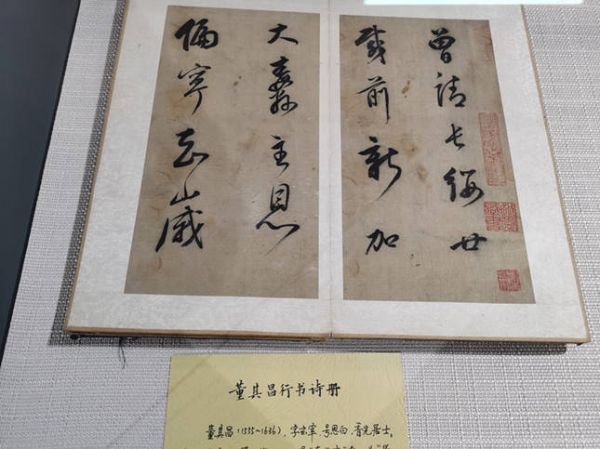 曾請長纓廿
載前新加
大纛主恩
偏寧知歲
董其昌行书诗册
董其昌(1555~1636),字玄宰,号思白,香光居士。